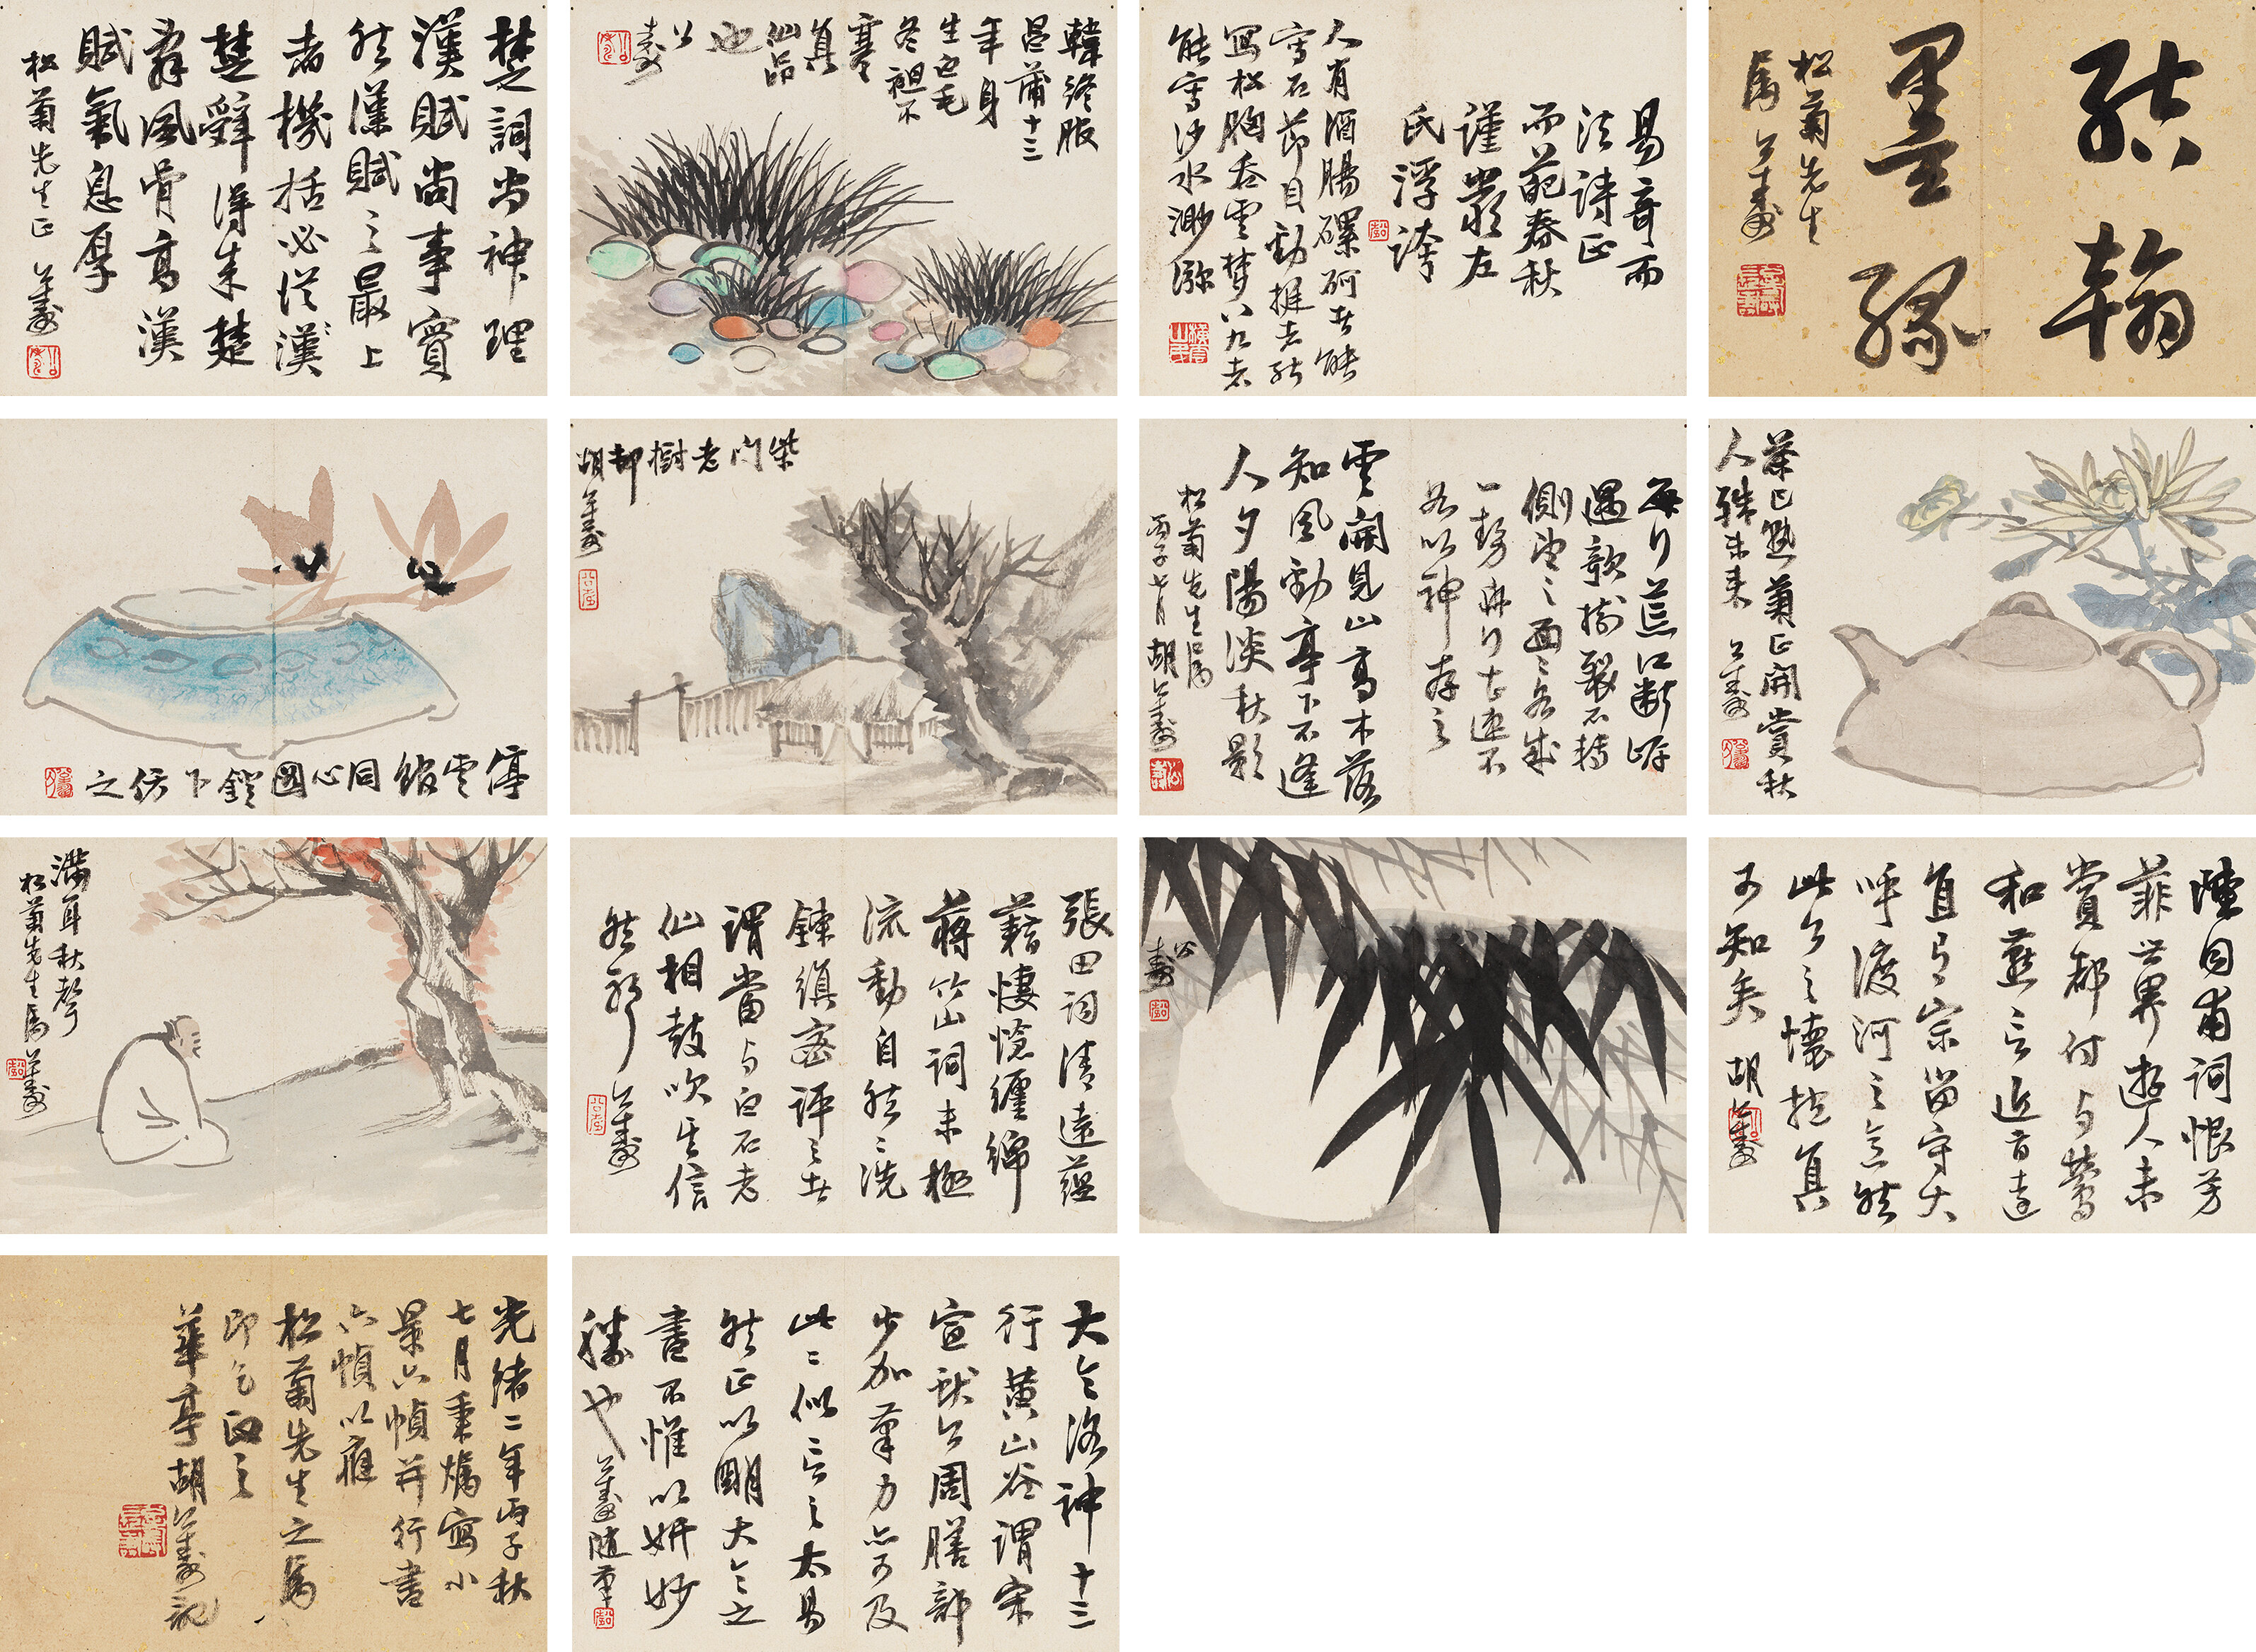 結翰
墨緣
松菊先生
屬 公壽
易奇而
法詩正
而葩春秋
謹嚴左
氏浮誇
人有酒腸磥砢者能
寫石節目勁挺者能
寫松胸吞雲夢八九者
能寫沙水渺瀰
韓終服
昌蒲十三
年身
生毛
冬袒不
寒
真
仙品
也
公
壽
楚詞尚神理
漢賦尚事實
然漢賦之最上
者機括必從漢
楚辭得來楚
辭風骨高漢
賦氣息厚
松菊先生正 公壽
茶已熟菊正開賞秋
人殊未來 公壽
每行荒江斷岸
遇欹樹裂石轉
側望之面面各成
一勢舟行甚速不
若以神存之
雲開見山高木落
知風勁亭下不逢
人夕陽淡秋影
松菊先生屬
丙子七月 胡公壽
柴門老樹邨
胡公壽
停雲館同心圖鐙下仿之
陳同甫詞恨芳
菲世界遊人未
賞都付與鶯
和燕言近旨遠
直有宗留守大
呼渡河之意然
此公之懷抱真
可知矣 胡公壽
公壽
張田詞清遠蘊
藉悽惋纏綿
蔣竹山詞未極
流動自然然洗
鍊縝密評之者
謂當與白石老
仙相鼓吹其信
然耶 公壽
滿耳秋聲
松菊先生屬 公壽
大令洛神十三
行黃山谷謂宋
宣獻公周膳部
少加筆力亦可及
此此似言之太易
然正以明大令之
書不惟以妍妙
勝也 公壽隨筆
光緒二年丙子秋
七月秉燭寫小
景六幀并行書
六幀以應
松菊先生之屬
即乞政之
華亭胡公壽記